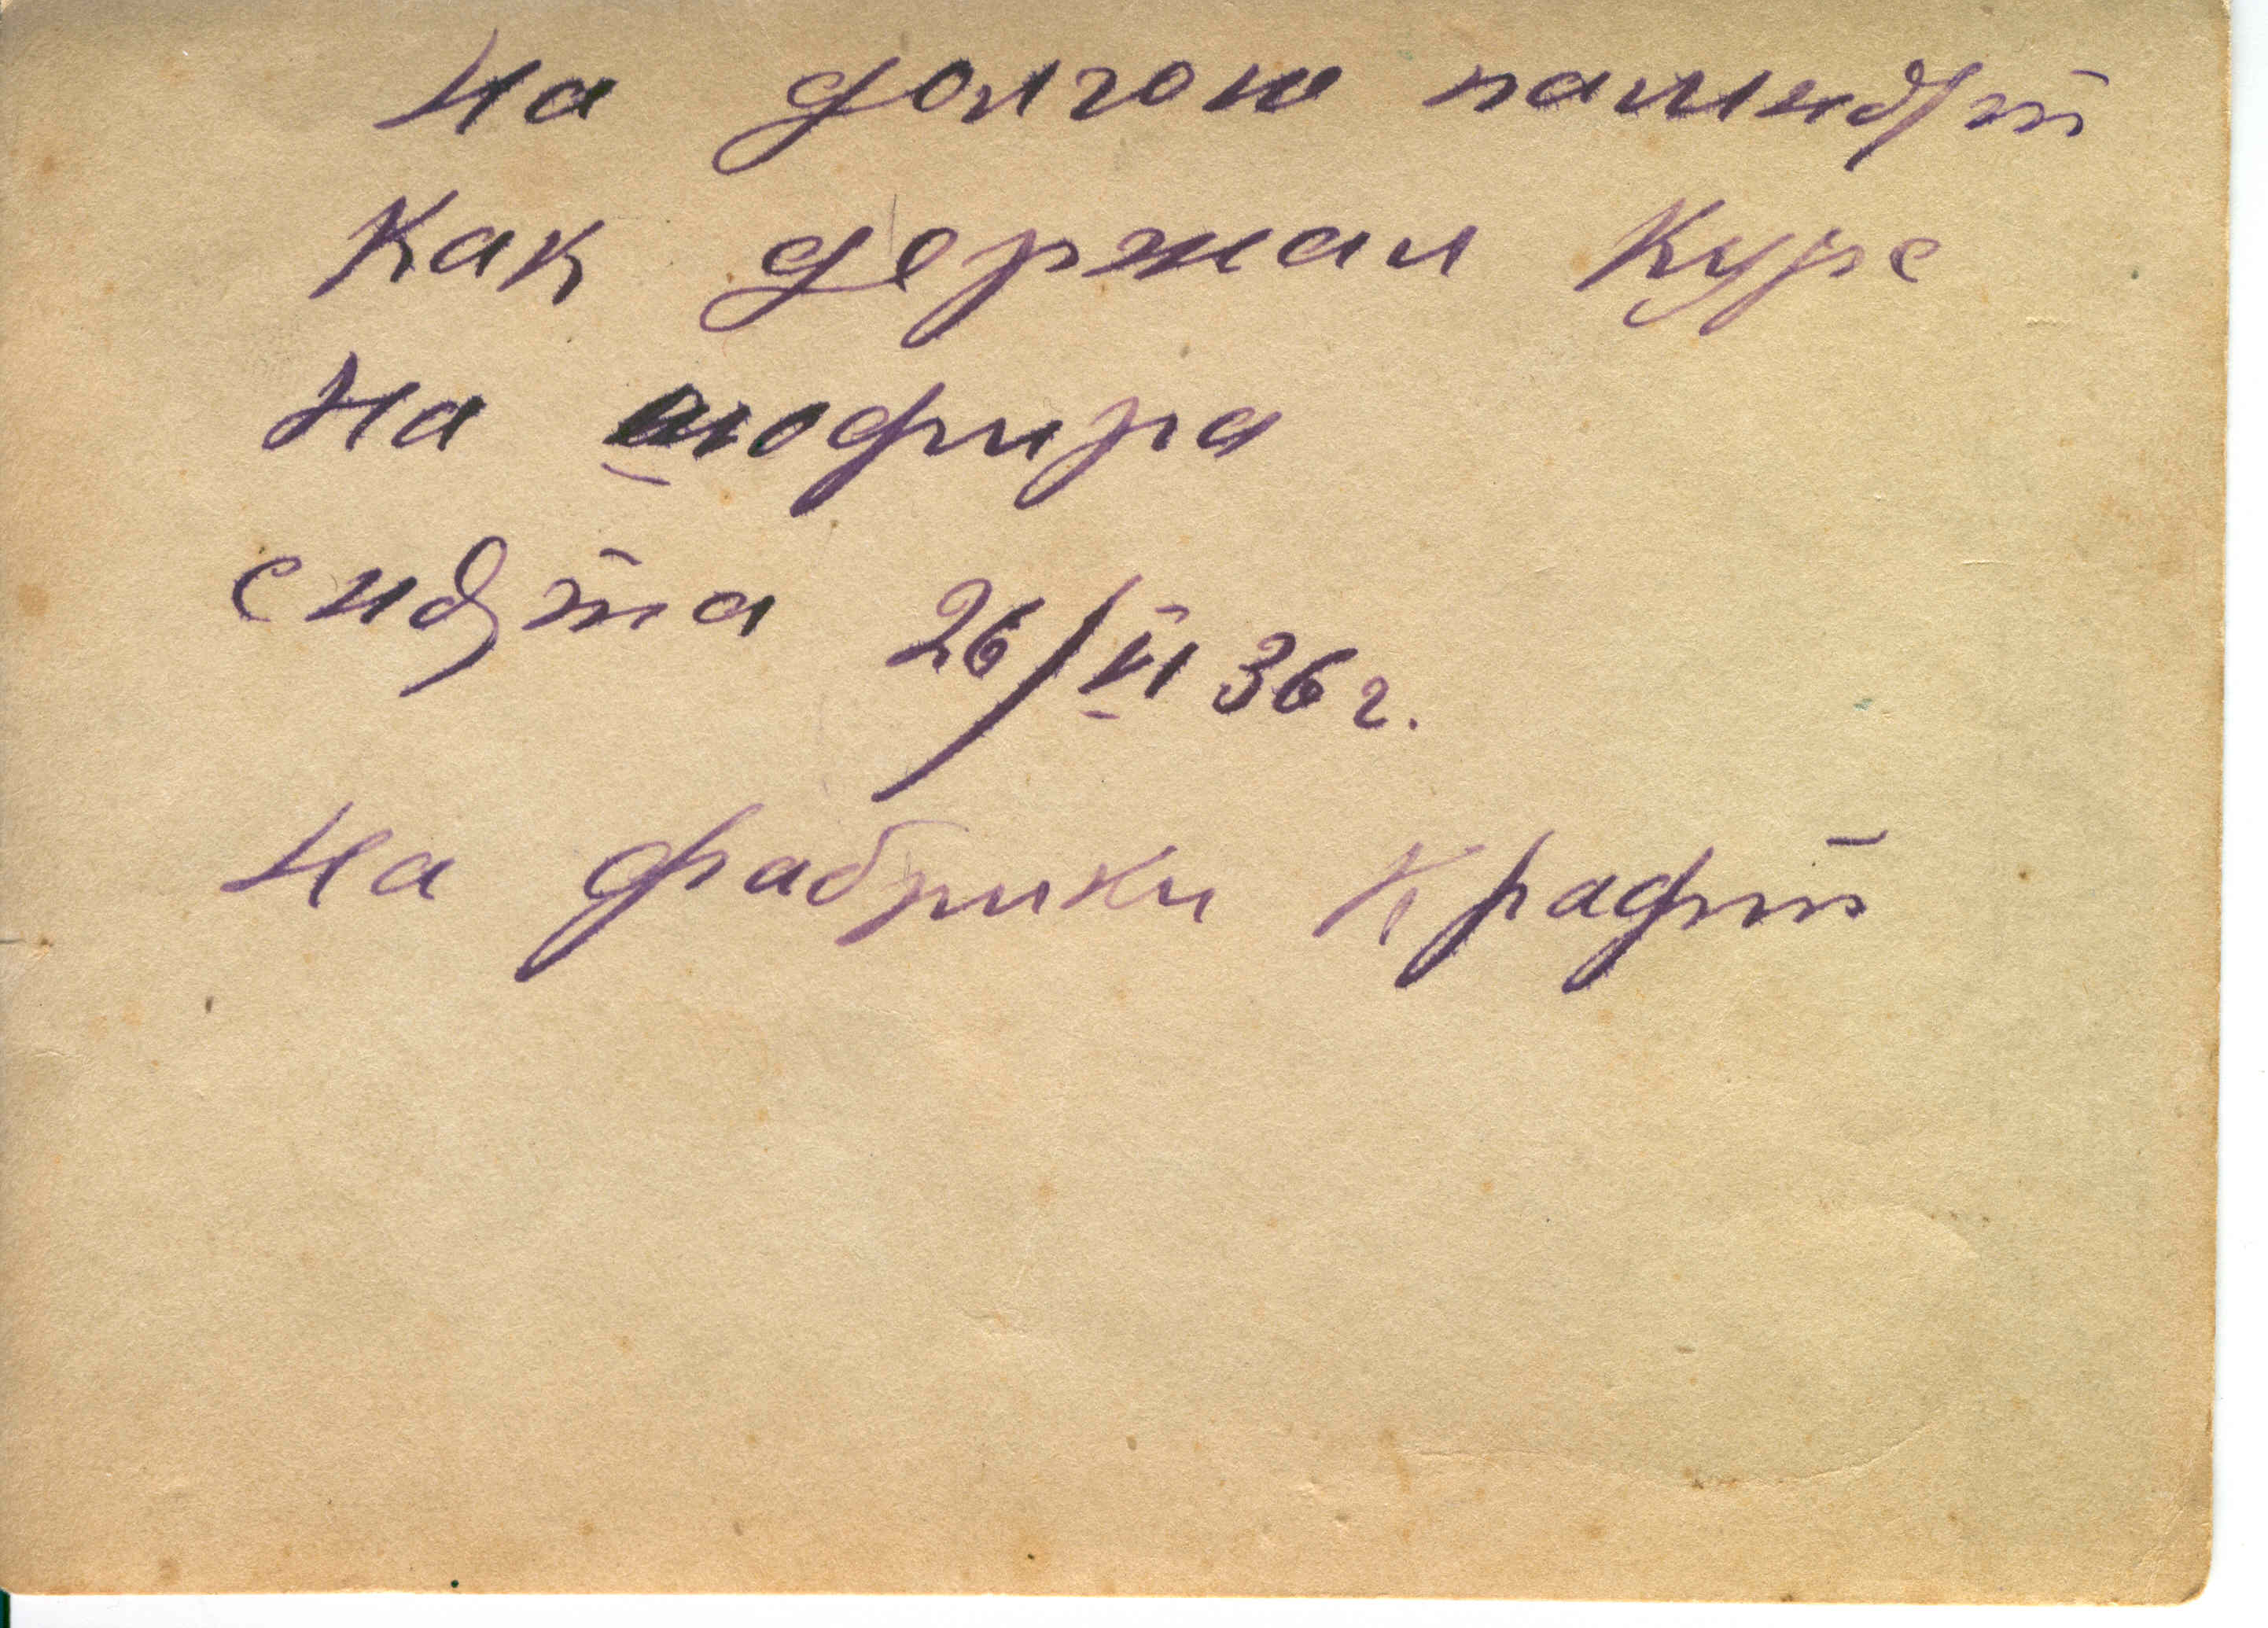 на долгою памият
Как держал Курс
на шофира
снята 26/VI 36 г.
на фабрики Крафт